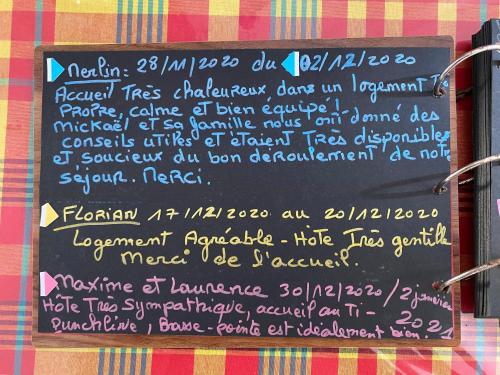 Merlin: 28/11/2020 du 02/12/2020
Accueil Très chaleureux, dans un logement Tr
Propre, calme et bien équipé!
Mickaël et sa famille nous ont donné des
conseils utiles et étaient Très disponibles
et soucieux du bon déroulement de notre
séjour. Merci.
Florian 17/12/2020 au 20/12/2020
Logement Agréable - Hôte Très gentille
Merci de l'accueil.
Maxime et Laurence 30/12/2020 / 2 janvier
Hôte Très Sympathique, accueil au Ti- 2021
punchline, Basse-pointe est idéalement bien.